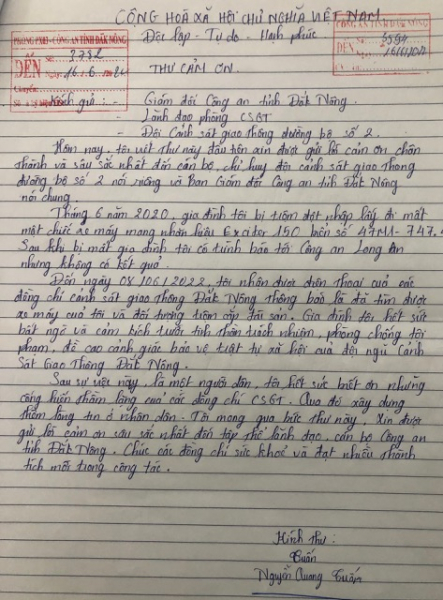 CỘNG HOÀ XÃ HỘI CHỦ NGHĨA VIỆT NAM
Độc lập - Tự do - Hạnh phúc
PHÒNG CSGT - CÔNG AN TỈNH ĐẮK NÔNG
ĐẾN
CÔNG AN TỈNH ĐẮK NÔNG
ĐẾN
THƯ CẢM ƠN.
Kính gửi : - Giám đốc Công an tỉnh Đắk Nông.
- Lãnh đạo phòng CSGT
- Đội Cảnh sát giao thông đường bộ số 2.
Hôm nay, tôi viết thư này đầu tiên xin được gửi lời cảm ơn chân
thành và sâu sắc nhất đến cán bộ, chỉ huy đội cảnh sát giao thông
đường bộ số 2 nói riêng và Ban Giám đốc Công an tỉnh Đắk Nông
nói chung.
Tháng 6 năm 2020, gia đình tôi bị trộm đột nhập lấy đi mất
một chiếc xe máy mang nhãn hiệu Exciter 150 biển số 47MA - 747.
Sau khi bị mất gia đình tôi có trình báo tới Công an Long An
nhưng không có kết quả.
Đến ngày 08/06/2022, tôi nhận được điện thoại của các
đồng chí cảnh sát giao thông Đắk Nông thông báo là đã tìm được
xe máy của tôi và đối tượng trộm cắp tài sản. Gia đình tôi hết sức
bất ngờ và cảm kích trước tinh thần trách nhiệm, phòng chống tội
phạm, đề cao cảnh giác bảo vệ trật tự xã hội của đội ngũ Cảnh
Sát Giao Thông Đắk Nông.
Sau sự việc này, là một người dân, tôi hết sức biết ơn những
cống hiến thầm lặng của các đồng chí CSGT. Qua đó xây dựng
thêm lòng tin ở nhân dân. Tôi mong qua bức thư này, xin được
gửi lời cảm ơn sâu sắc nhất đến tập thể lãnh đạo, cán bộ Công an
tỉnh Đắk Nông. Chúc các đồng chí sức khoẻ và đạt nhiều thành
tích mới trong công tác.
Kính thư :
Tuấn
Nguyễn Quang Tuấn